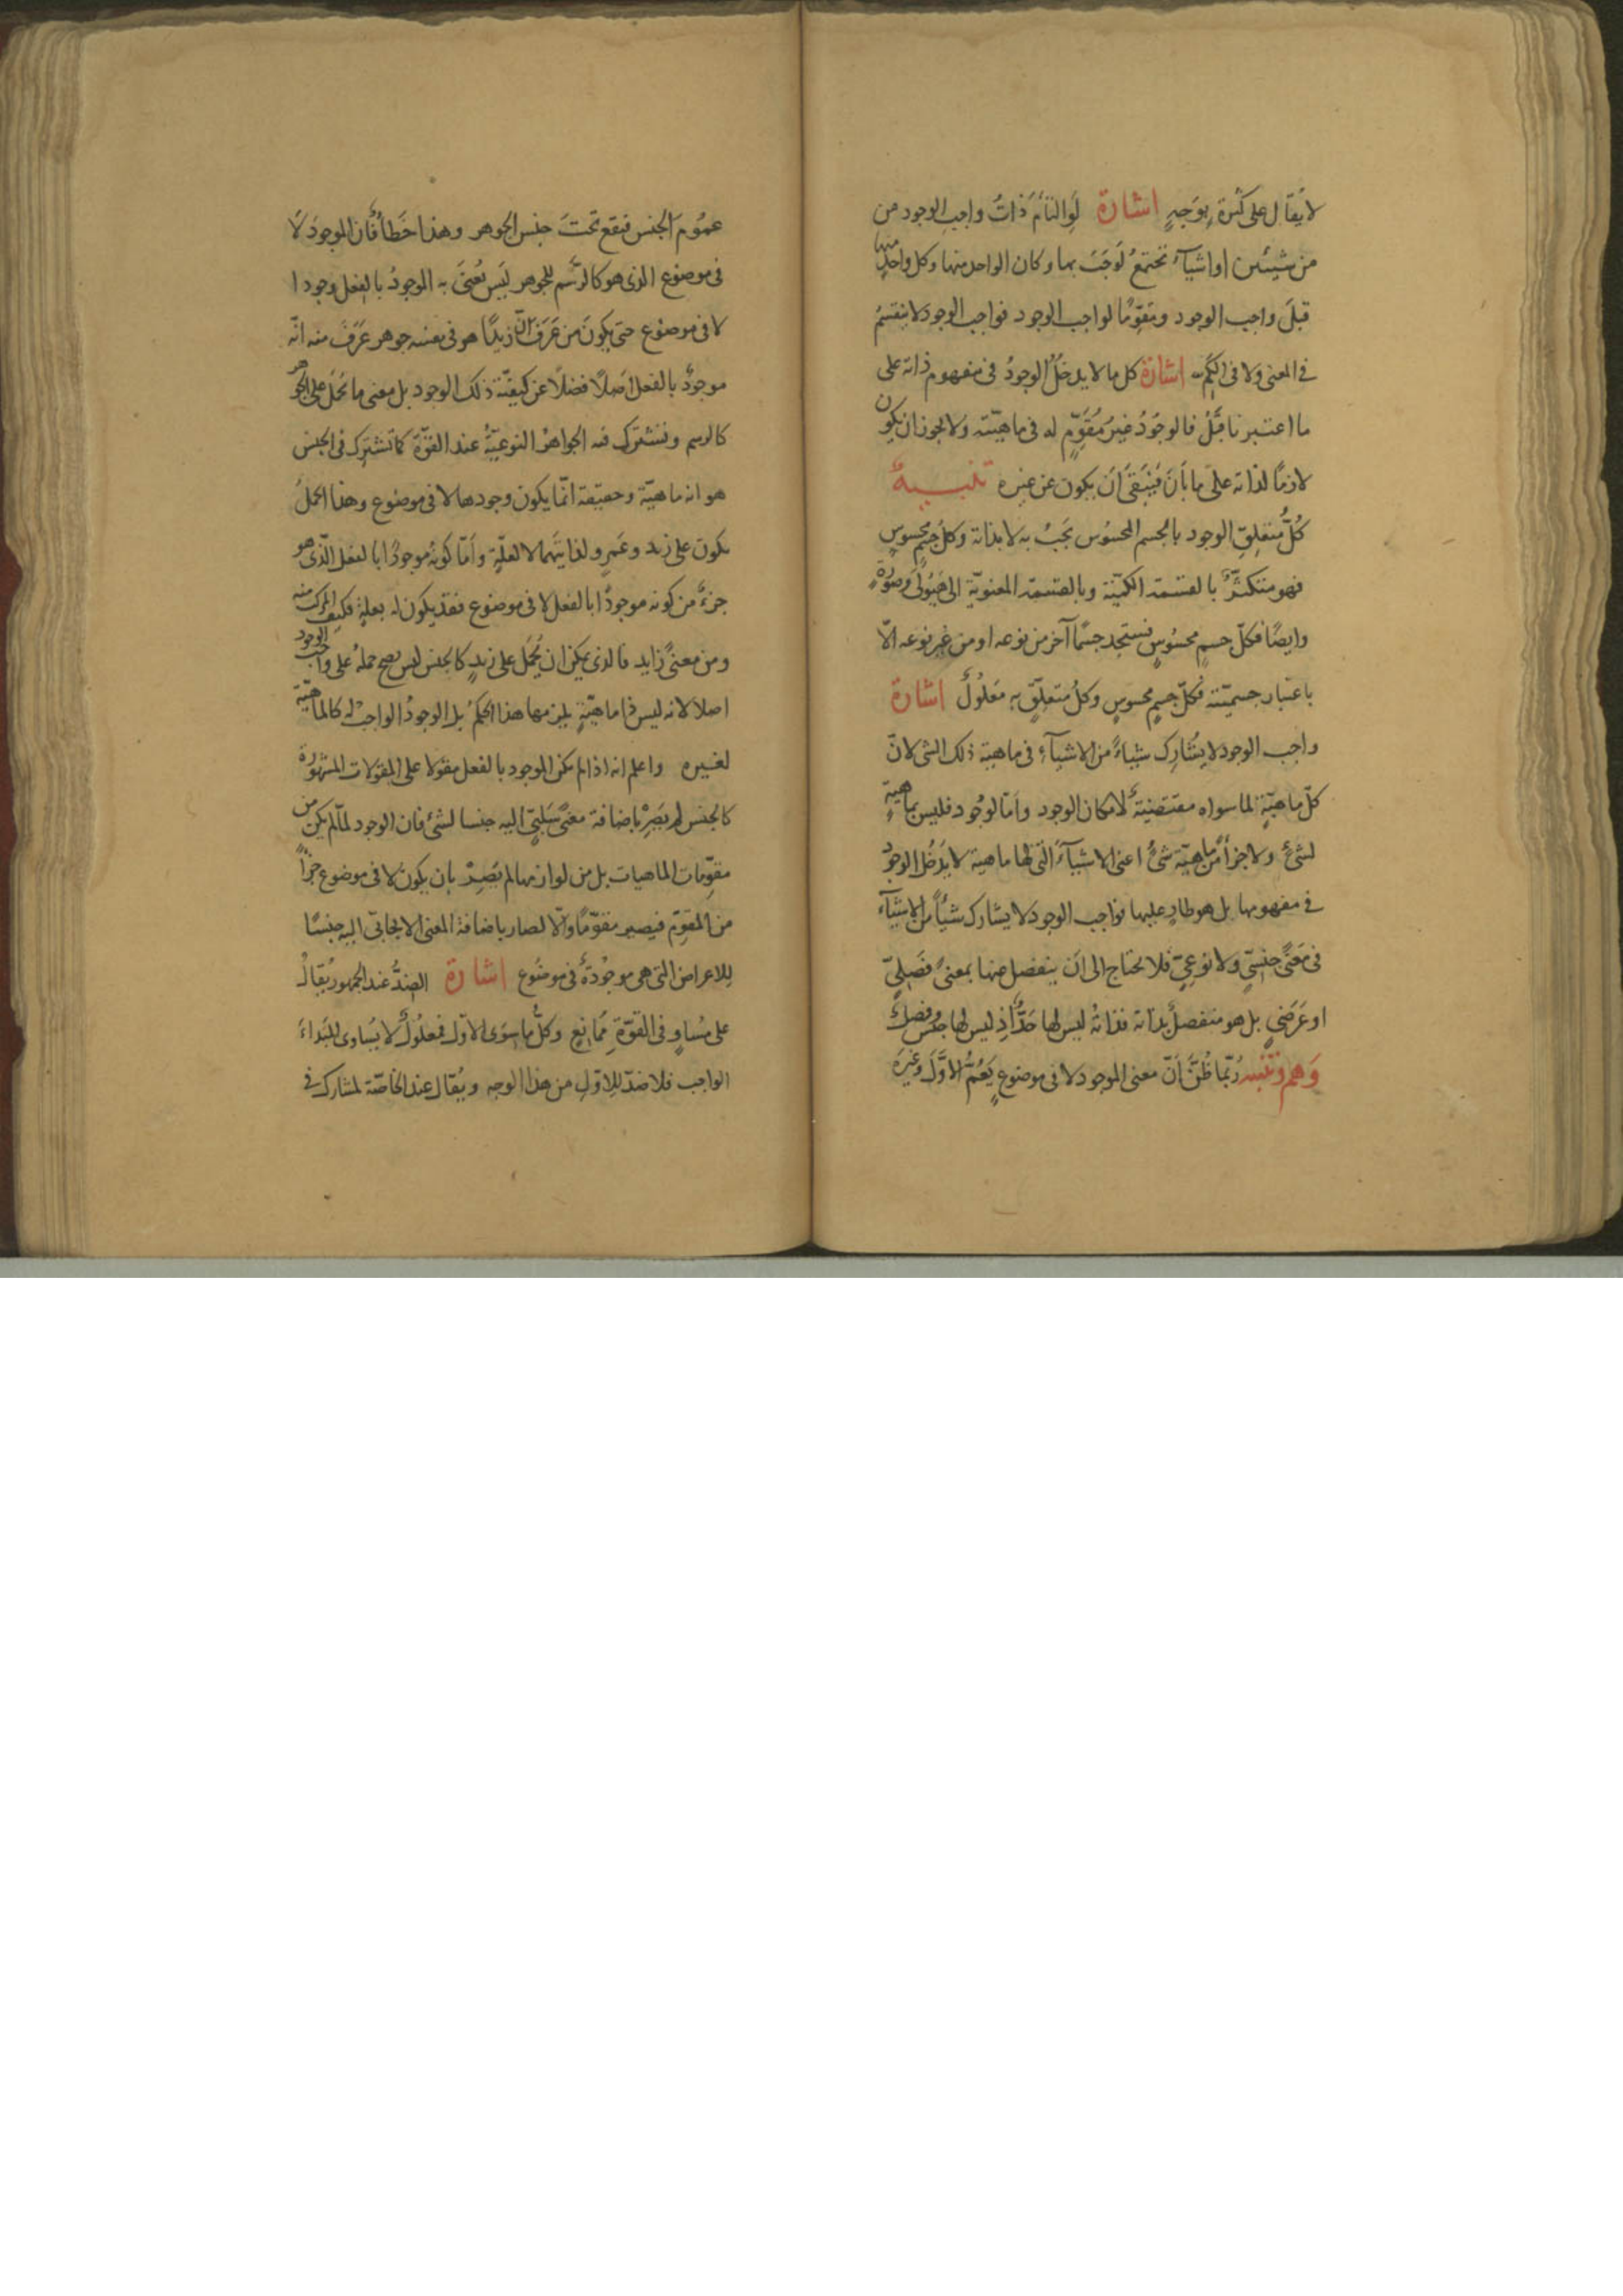 لا يُقال على كثرة بوجهٍ اشارة لو التأم ذاتُ واجب الوجود من
من شيئين او اشياء تجتمعُ لوجَبَ بها وكان الواحد منها وكل واحد منها
قبلَ واجب الوجود ومقوّمًا لواجب الوجود فواجب الوجود لا ينقسمُ
فى المعنى ولا فى الكم اشارة كل ما لا يدخلُ الوجودُ فى مفهوم ذاته على
ما اعتبرنا قبلُ فالوجودُ غيرُ مُقوِّمٍ له فى ماهيّته ولا يجوز ان يكون
لازمًا لذاته على ما بان فيبقى أن يكون عن غيره تنبيهٌ
كلُّ متعلّق الوجود بالجسم المحسُوس يجبُ به لا بذاته وكل جسمٍ محسوسٍ
فهو متكثّرٌ بالقسمة الكميّة وبالقسمة المعنويّة الى هَيُولى وصورةٍ
وايضًا فكلّ جسمٍ محسُوسٍ فستجد جسمًا آخر من نوعه او من غير نوعه الّا
باعتبار جسميّته فكلّ جسمٍ محسوسٍ وكلُ متعلّقٍ به مَعلُولٌ اشارة
واجب الوجود لا يُشارك شيئاً من الاشيآءِ فى ماهية ذلك الشى لانّ
كلّ ماهيّةٍ لما سواه مقتضيةٌ لامكان الوجود وأمّا الوجُود فليس بماهيةٍ
لشئٍ ولا جزأً من ماهيّة شئٍ اعنى الاشيآءَ التى لها ماهية لا يَدخُل الوجودُ
فى مفهومها بل هو طارٍ عليها فواجب الوجود لا يشارك شيئاً من الاشيآء
فى مَعنًى جنسىٍّ ولا نوعىٍّ فلا يحتاج الى أن ينفصل عنها بمعنًى فصلىٍّ
او عَرَضىٍ بل هو منفصلٌ بذاته فذاتُه ليس لها حَدٌّ اذ ليس لها جنس وفصلٌ
وَهم وتنبيه ربّما ظُنَّ أنّ معنى الموجود لا فى موضوعٍ يَعُمُّ الاوّلَ وغيرَه
عمُومَ الجنس فيقع تحتَ جنس الجوهر وهذا خطأٌ فان الموجودَ لا
فى موضوع الذى هو كالرّسم للجوهر ليس يُعنى به الموجودُ بالفعل وجودا
لا فى موضوع حتى يكونَ من عَرَفَ انّ زيدًا هو فى نفسه جوهر عَرَفَ منه انّه
موجودٌ بالفعل اصلًا فضلًا عن كيفيّة ذلك الوجود بل معنى ما يحمَل على الجوهر
كالرسم وتشترك فيه الجواهرُ النوعيّةُ عند القوّة كما تشترك فى الجنس
هو انه ماهيّة وحقيقة انّما يكون وجودها لا فى موضوع وهذا الحملُ
يكون على زيد وعَمرٍو لذاتيهما لا لعلّةٍ وأمّا كونه موجودًا بالفعل الّذى هو
جزءٌ من كونه موجودًا بالفعل لا فى موضوع فقد يكون له بعلةٍ فكيف المركب منه
ومن معنًى زايد فالذى يمكن ان يُحمَل على زيدٍ كالجنس ليس يصح حملهُ على واجب الوجود
اصلا لانه ليس ذا ماهيّةٍ يلزمها هذا الحكمُ بل الوجودُ الواجبُ له كالماهيّة
لغيره واعلم انه اذا لم يكن الموجود بالفعل مقولا على المقولات المشهورة
كالجنس لم يَصِرْ باضافة معنًى سَلبىٍّ اليه جنسا لشئ فان الوجود لمّا لم يكن من
مقوّمات الماهيات بل من لوازمها لم يَصِرْ بان يكونَ لا فى موضوع جزأً
من المقوّم فيصير مقوّمًا والّا لصار باضافة المعنى الايجابىّ اليه جنسًا
للاعراض التى هى موجُودةٌ فى موضُوع اشارة الضدُّ عند الجمهور يُقالُ
على مُساوٍ فى القوّة ممانعٍ وكلُّ ما سوى الاوّل فمعلُولٌ لا يُساوى المبدأ
الواجب فلا ضدّ للاوّل من هذا الوجه ويُقال عند الخاصّة لمشارك فى